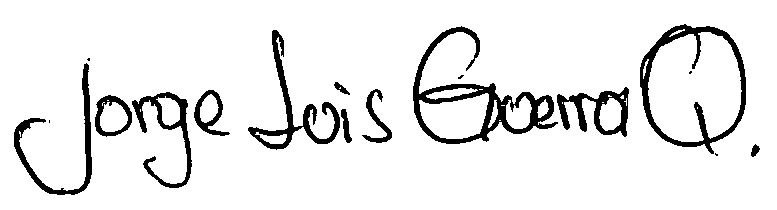 Jorge Luis Guerra Q.